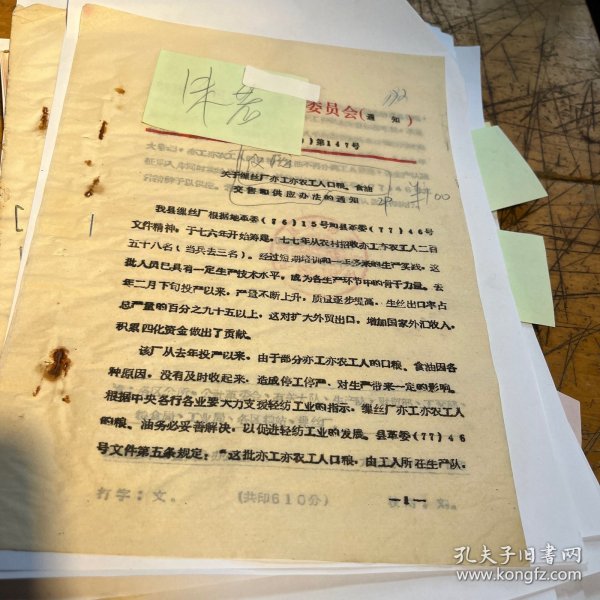 委员会（通知）
第147号
关于缫丝厂亦工亦农工人口粮、食油
交售和供应办法的通知
我县缫丝厂根据地革委（76）15号和县革委（77）46号
文件精神，于七六年开始筹建，七七年从农村招收亦工亦农工人二百
五十八名（当兵去三名）。经过短期培训和一年多来的生产实践，这
批人员已具有一定生产技术水平，成为各生产环节中的骨干力量。去
年二月下旬投产以来，产量不断上升，质量逐步提高，生丝出口率占
总产量的百分之九十五以上，这对扩大外贸出口，增加国家外汇收入，
积累四化资金做出了贡献。
该厂从去年投产以来，由于部分亦工亦农工人的口粮、食油因各
种原因，没有及时收起来，造成停工停产，对生产带来一定的影响。
根据中央各行各业要大力支援轻纺工业的指示，缫丝厂亦工亦农工人
的粮、油务必妥善解决，以促进轻纺工业的发展。县革委（77）46
号文件第五条规定：“这批亦工亦农工人口粮，由工人所在生产队，
打字：文。 （共印610份） —1—
孔夫子旧书网
www.kongfz.com